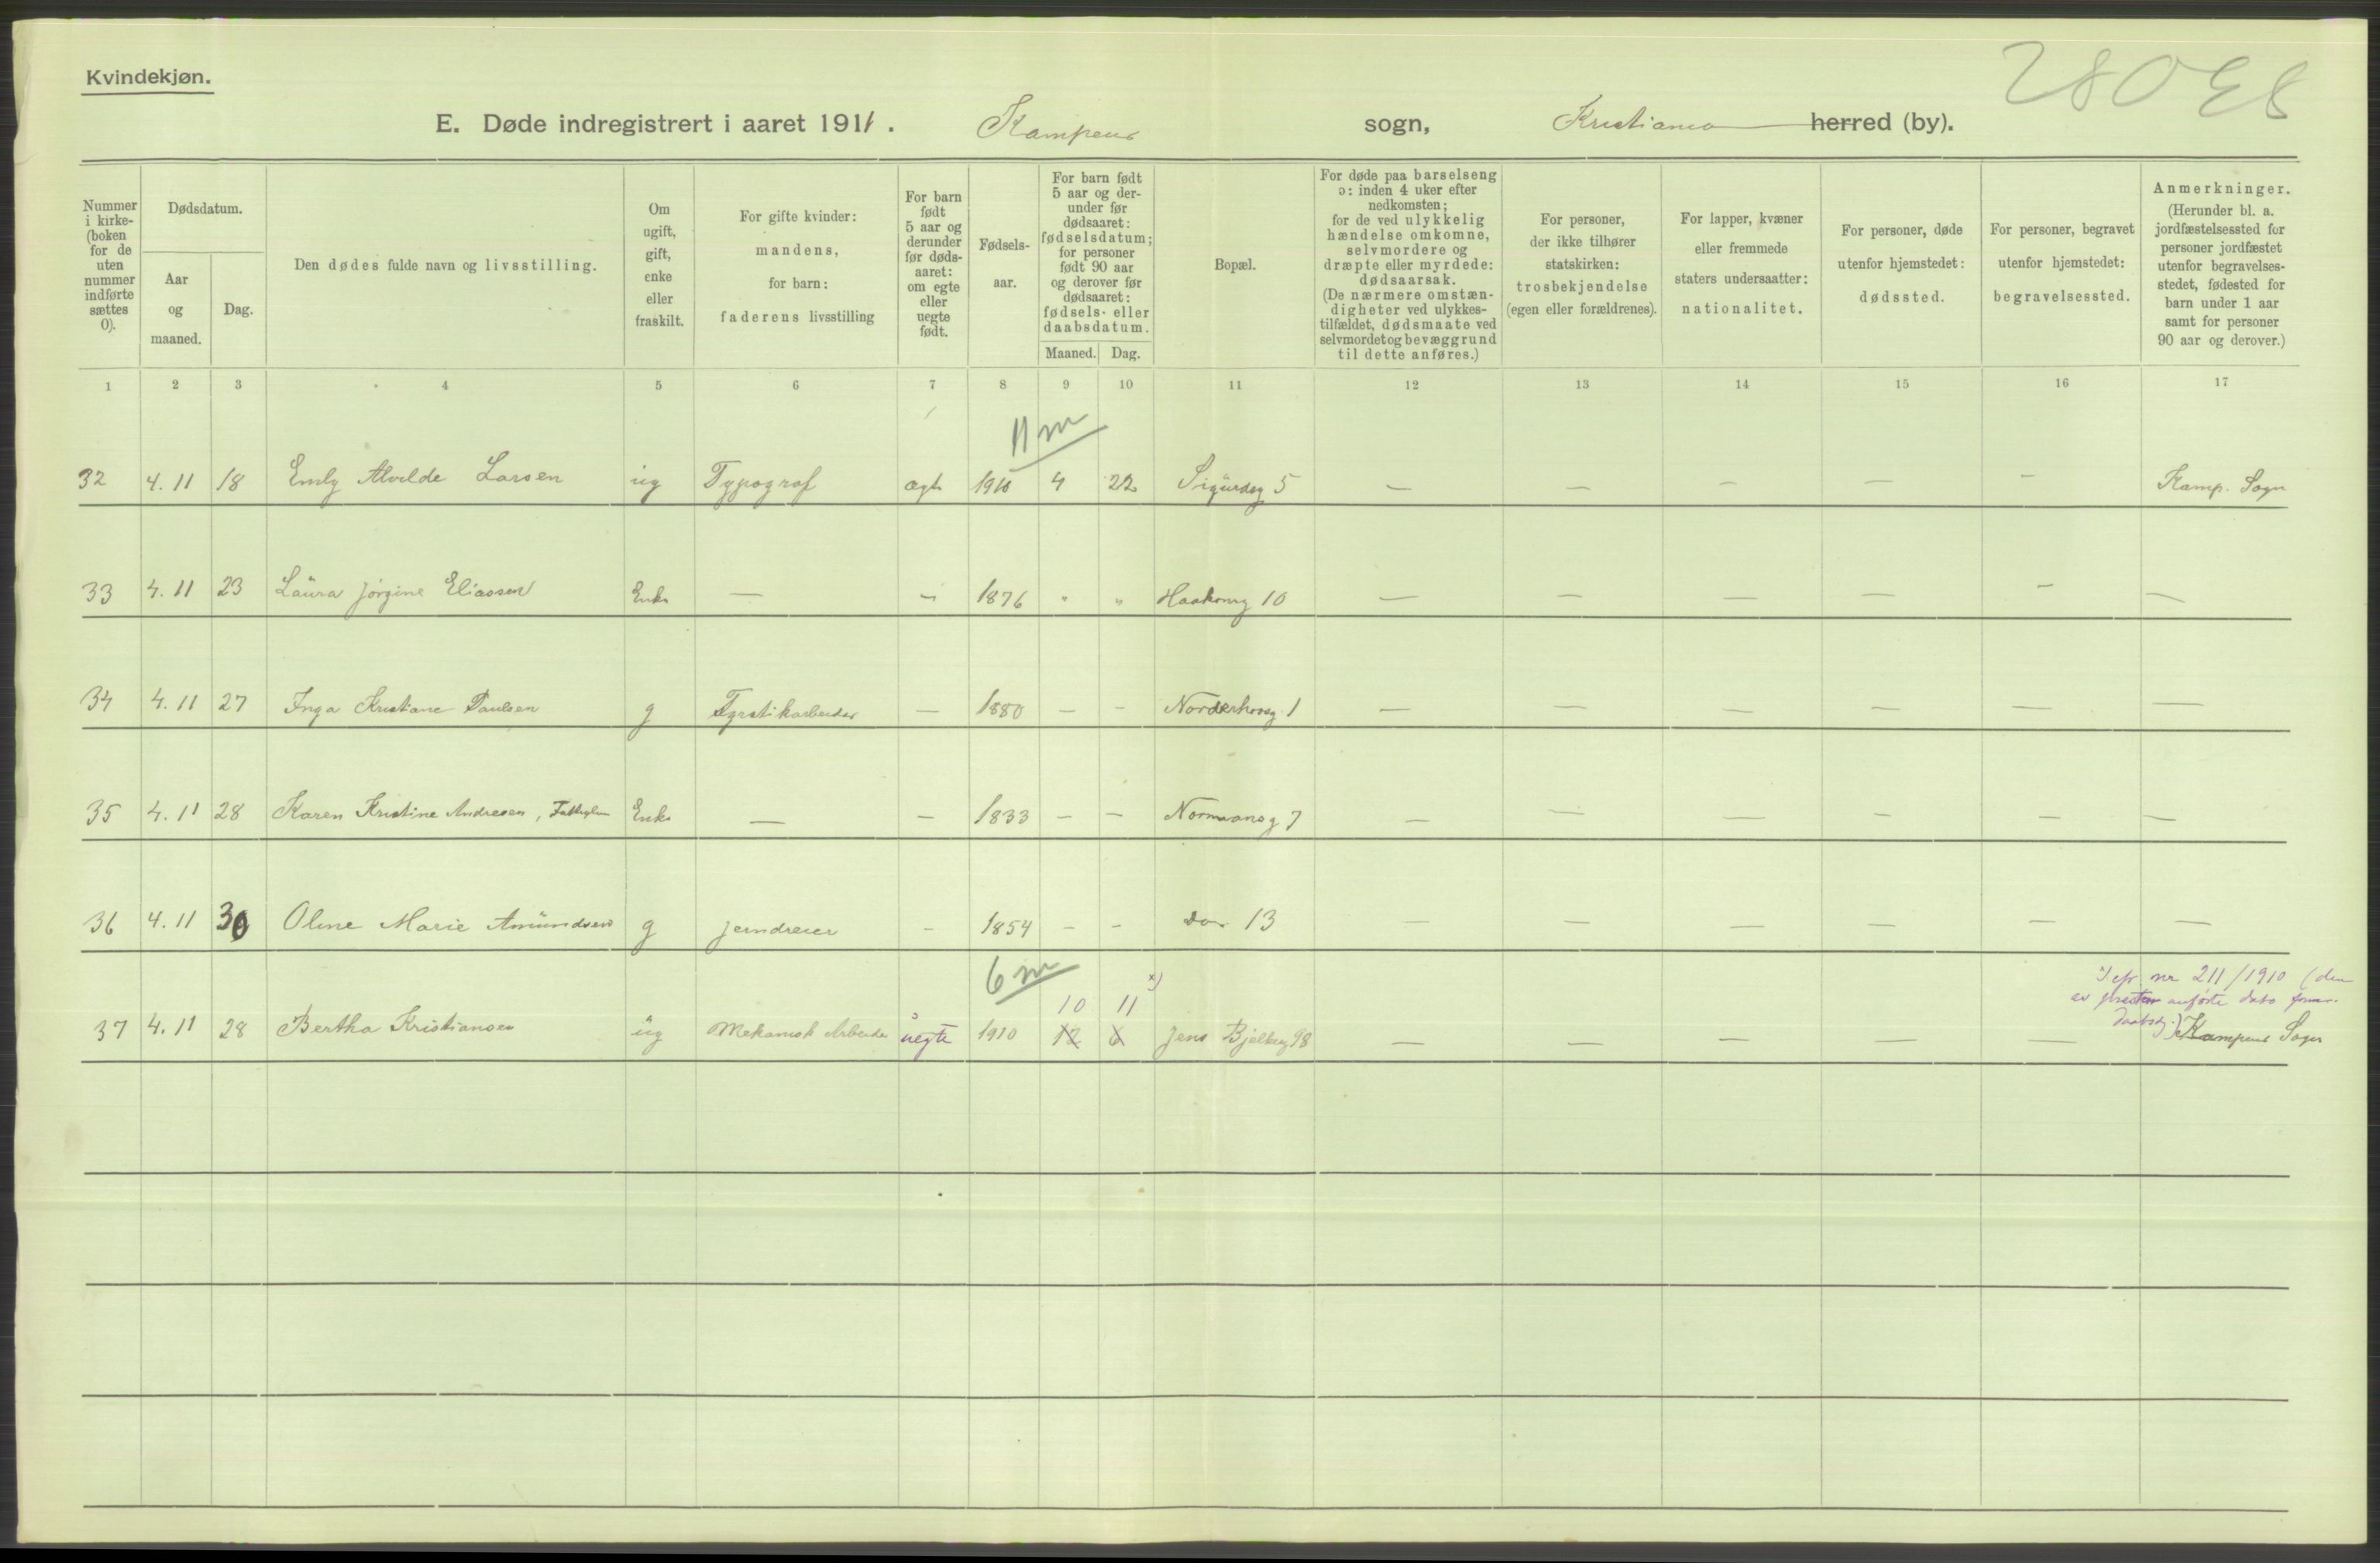 Kvindekjøn.
28048
E. Døde indregistrert i aaret 1911. Kampens sogn, Kristiania herred (by).
Nummer i kirke- (boken for de uten nummer indførte sættes 0).
Dødsdatum.
Aar og maaned.
Dag.
Den dødes fulde navn og livsstilling.
Om ugift, gift, enke eller fraskilt.
For gifte kvinder: mandens, for barn: faderens livsstilling
For barn født 5 aar og derunder før døds- aaret: om egte eller uegte født.
Fødsels- aar.
For barn født 5 aar og der- under før dødsaaret: fødselsdatum; for personer født 90 aar og derover før dødsaaret: fødsels- eller daabsdatum.
Maaned. Dag.
Bopæl.
For døde paa barselseng ɔ: inden 4 uker efter nedkomsten; for de ved ulykkelig hændelse omkomne, selvmordere og dræpte eller myrdede: dødsaarsak. (De nærmere omstæn- digheter ved ulykkes- tilfældet, dødsmaate ved selvmordet og bevæggrund til dette anføres.)
For personer, der ikke tilhører statskirken: trosbekjendelse (egen eller forældrenes).
For lapper, kvæner eller fremmede staters undersaatter: nationalitet.
For personer, døde utenfor hjemstedet: dødssted.
For personer, begravet utenfor hjemstedet: begravelsessted.
Anmerkninger. (Herunder bl. a. jordfæstelsessted for personer jordfæstet utenfor begravelses- stedet, fødested for barn under 1 aar samt for personer 90 aar og derover.)
1 2 3 4 5 6 7 8 9 10 11 12 13 14 15 16 17
11 m
32 4.11 18 Emly Alvilde Larsen ug Typograf ægt 1910 4 22 Sigurdsg 5 — — — — — Kamp. Sogn
33 4.11 23 Laura Jørgine Eliassen Enke — — 1876 " " Haakonsg 10 — — — — — —
34 4.11 27 Inga Kristiane Paulsen g 1880 — — Norderhovsg 1 — — — — — —
35 4.11 28 Karen Kristine Andresen, Enke — — 1833 — — Normansg 7 — — — — — —
36 4.11 30 Oline Marie Amundsen g Jerndreier — 1854 — — Do 13 — — — — — —
6 m
10 11 x)
37 4.11 28 Bertha Kristiansen ug Mekanisk Arbeider uegte 1910 12 6 Jens Bjelkesg 98 — — — — —
nr 211/1910 (den
av presten anførte dato
Kampens Sogn